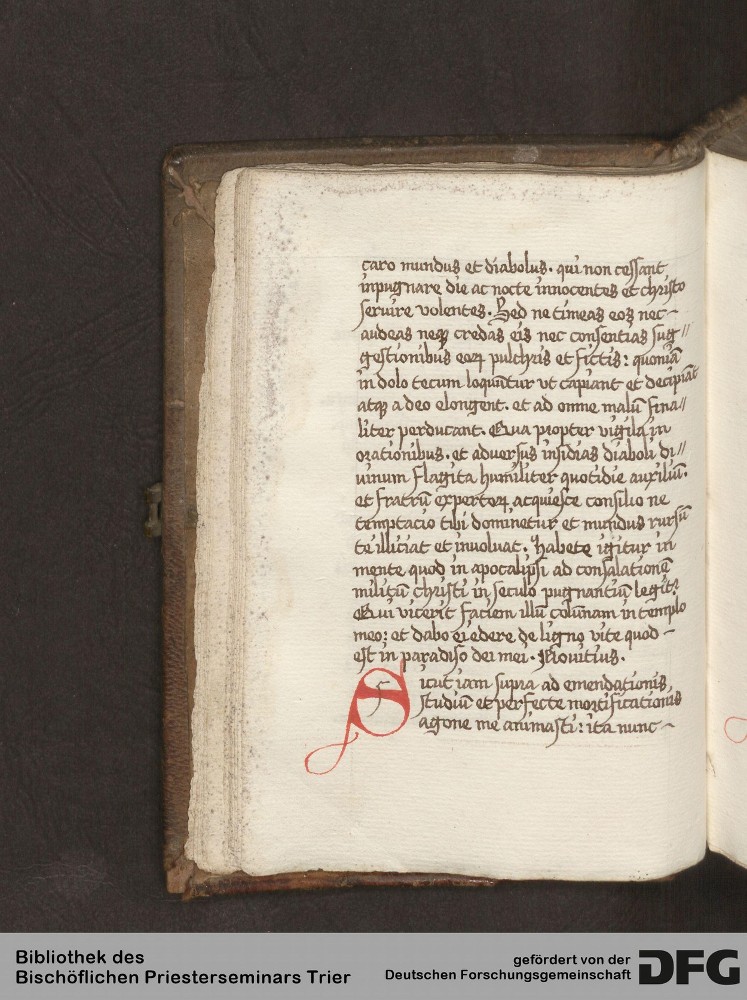 caro mundus et diabolus. qui non cessant
inpugnare die ac nocte innocentes et christo
seruire volentes. Sed ne timeas eos nec
audeas neqꝫ credas eis nec consentias sug//
gestionibus eoꝝ pulchris et fictis: quoniā
in dolo tecum loquūtur vt capiant et decipiāt
atqꝫ a deo elongent. et ad omne malū fina//
liter perducant. Qua propter vigila in
orationibus. et aduersus insidias diaboli di//
uinum flagita humiliter quotidie auxiliū.
et fratrū expertoꝝ acquiesce consilio ne
temptacio tibi dominetur et mundus rursū
te illiciat et inuoluat. Habete igitur in
mente quod in apocalipsi ad consalationē
militū christi in seculo pugnantiū legit͛:
Qui vicerit faciem illū colūnam in templo
meo: et dabo ei edere de ligno vite quod
est in paradiso dei mei. Nouitius.
Sicut iam supra ad emendationis
studiū et perfecte mortificationis
agone me animasti: ita nunc
Bibliothek des
Bischöflichen Priesterseminars Trier
gefördert von der
Deutschen Forschungsgemeinschaft
DFG